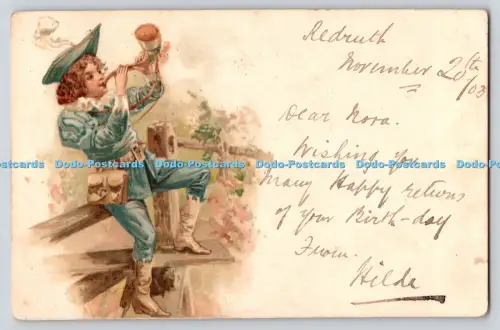 Redruth
November 20th
/03
Dear Nora.
Wishing you
many Happy returns
of your Birth-day
From
Hilda
Dodo-Postcards Dodo-Postcards Dodo-Postcards Dodo-Postcards Dodo-Postcards Dodo-Postcards